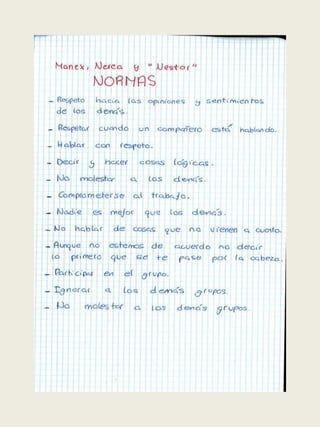 Manex, Nerea y "Nestor"
NORMAS
- Respeto hacia las opiniones y sentimientos
de los demás.
- Respetar cuando un compañero está hablando.
- Hablar con respeto.
- Decir y hacer cosas lógicas.
- No molestar a los demás.
- Comprometerse al trabajo.
- Nadie es mejor que los demás.
- No hablar de cosas que no vienen a cuento.
- Aunque no estemos de acuerdo no decir
lo primero que se te pase por la cabeza.
- Participar en el grupo.
- Ignorar a los demás grupos.
- No molestar a los demás grupos.